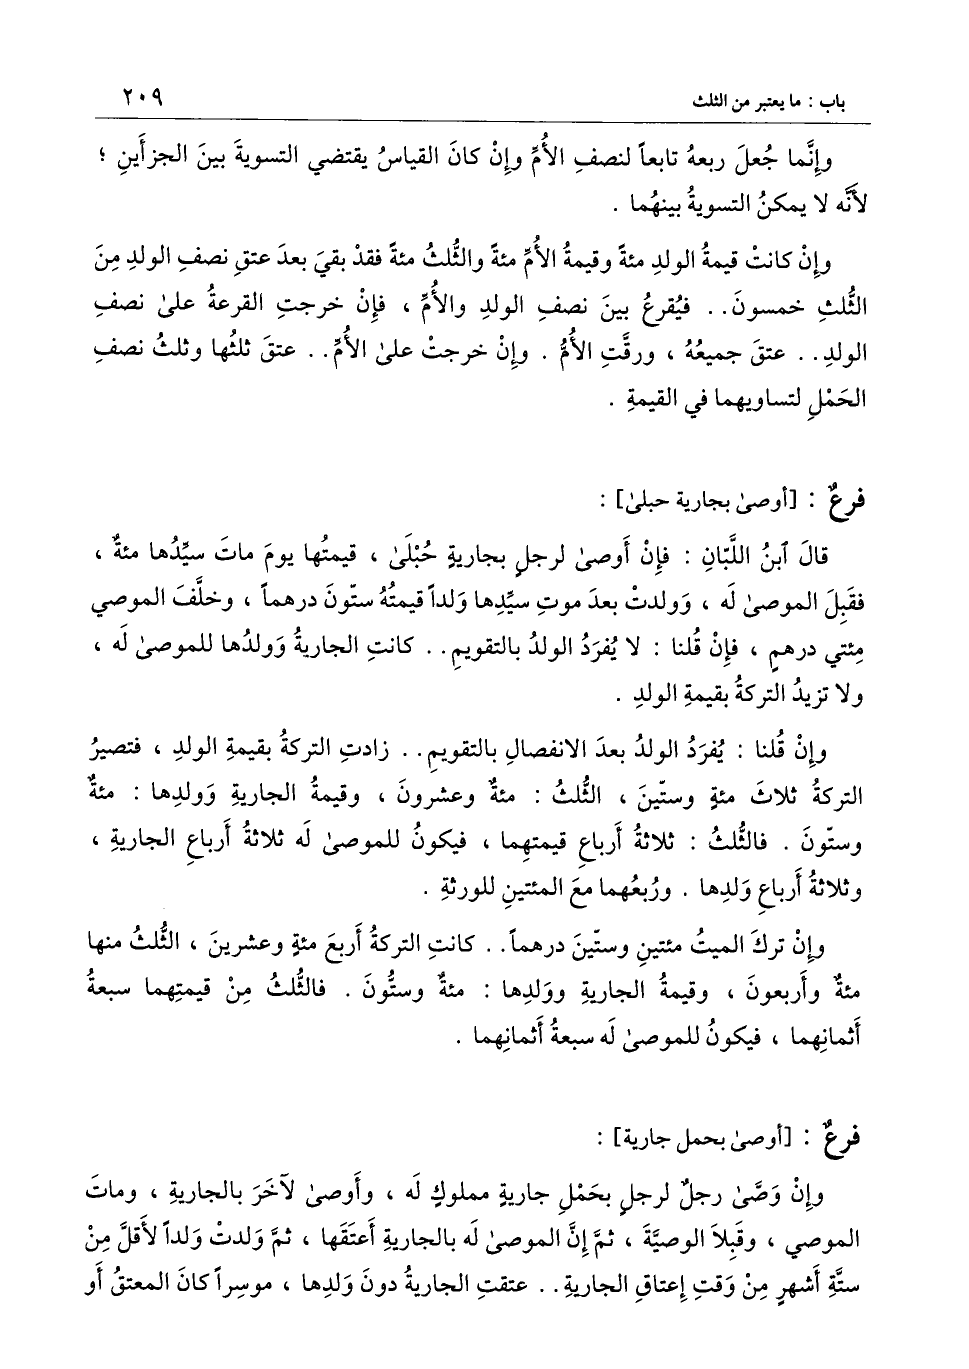 باب : ما يعتبر من الثلث ٢٠٩
وإِنَّما جُعلَ ربعهُ تابعاً لنصفِ الأُمِّ وإِنْ كانَ القياسُ يقتضي التسويةَ بينَ الجزأَينِ ؛
لأَنَّه لا يمكنُ التسويةُ بينهُما .
وإِنْ كانتْ قيمةُ الولدِ مئةً وقيمةُ الأُمِّ مئةً والثُّلثُ مئةً فقدْ بقيَ بعدَ عتقِ نصفِ الولدِ مِنَ
الثُّلثِ خمسونَ.. فيُقرعُ بينَ نصفِ الولدِ والأُمِّ ، فإِنْ خرجتِ القرعةُ علىٰ نصفِ
الولدِ.. عتقَ جميعُهُ ، ورقَّتِ الأُمُّ . وإِنْ خرجتْ علىٰ الأُمِّ.. عتقَ ثلثُها وثلثُ نصفِ
الحَمْلِ لتساويهما في القيمةِ .
فرعٌ : [أوصىٰ بجارية حبلىٰ] :
قالَ ٱبنُ اللَّبَّانِ : فإِنْ أَوصىٰ لرجلٍ بجاريةٍ حُبْلَىٰ ، قيمتُها يومَ ماتَ سيِّدُها مئةٌ ،
فقَبِلَ الموصىٰ لَه ، وَولدتْ بعدَ موتِ سيِّدِها وَلداً قيمتُهُ ستّونَ درهماً ، وخلَّفَ الموصي
مِئتي درهمٍ ، فإِنْ قُلنا : لا يُفرَدُ الولدُ بالتقويمِ.. كانتِ الجاريةُ وَولدُها للموصىٰ لَه ،
ولا تزيدُ التركةُ بقيمةِ الولدِ .
وإِنْ قُلنا : يُفرَدُ الولدُ بعدَ الانفصالِ بالتقويمِ.. زادتِ التركةُ بقيمةِ الولدِ ، فتصيرُ
التركةُ ثلاثَ مئةٍ وستّينَ ، الثُّلثُ : مئةٌ وعشرونَ ، وقيمةُ الجاريةِ وَولدِها : مئةٌ
وستّونَ . فالثُّلثُ : ثلاثةُ أَرباعِ قيمتِهِما ، فيكونُ للموصىٰ لَه ثلاثةُ أَرباعِ الجاريةِ ،
وثلاثةُ أَرباعِ وَلدِها . ورُبعُهما معَ المئتينِ للورثةِ .
وإِنْ تركَ الميتُ مئتينِ وستّينَ درهماً.. كانتِ التركةُ أَربعَ مئةٍ وعشرينَ ، الثُّلثُ منها
مئةٌ وأَربعونَ ، وقيمةُ الجاريةِ ووَلدِها : مئةٌ وستُّونَ . فالثُّلثُ مِنْ قيمتِهِما سبعةُ
أَثمانِهِما ، فيكونُ للموصىٰ لَه سبعةُ أَثمانِهِما .
فرعٌ : [أوصىٰ بحمل جارية] :
وإِنْ وَصَّىٰ رجلٌ لرجلٍ بحَمْلِ جاريةٍ مملوكةٍ لَه ، وأَوصىٰ لآخَرَ بالجاريةِ ، وماتَ
الموصي ، وقَبِلاَ الوصيَّةَ ، ثمَّ إِنَّ الموصىٰ لَه بالجاريةِ أَعتقَها ، ثمَّ وَلدتْ وَلداً لأَقلَّ مِنْ
ستَّةِ أَشهرٍ مِنْ وَقتِ إِعتاقِ الجاريةِ.. عتقتِ الجاريةُ دونَ وَلدِها ، موسِراً كانَ المعتقُ أَو